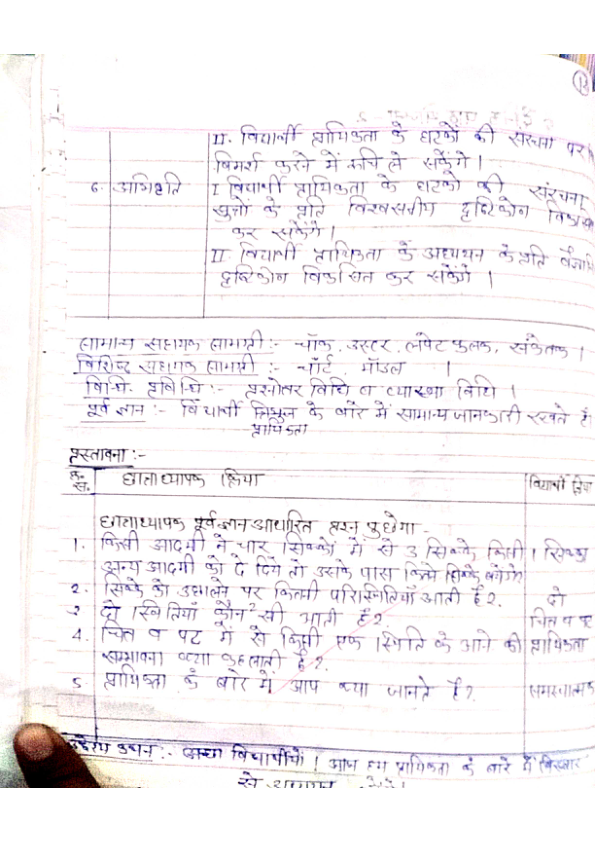 II. विद्यार्थी प्रायिकता के घटकों की संरचना पर
विमर्श करने में रूचि ले सकेंगे।
6. अभिवृति I विद्यार्थी प्रायिकता के घटको की संरचना,
सूत्रों के प्रति विश्वसनीय दृष्टिकोण
कर सकेंगे।
II विद्यार्थी प्रायिकता के अध्ययन के प्रति
दृष्टिकोन विकसित कर सकेंगे।
सामान्य सहायक सामग्री :- चॉक, डस्टर, लपेट फलक, संकेतक।
विशिष्ट सहायक सामग्री :- चॉर्ट, मॉडल ।
विधि-प्रविधि :- प्रश्नोतर विधि व व्याख्या विधि।
पूर्व ज्ञान :- विद्यार्थी के बारे में सामान्य जानकारी रखते है।
प्रायिकता
प्रस्तावना :-
क्र. सं. छात्राध्यापक क्रिया विद्यार्थी क्रिया
छात्राध्यापक पूर्वज्ञान आधारित प्रश्न पुछेगा -
1. किसी आदमी ने चार सिक्कों में से 3 सिक्के किसी 1 सिक्का
अन्य आदमी को दे दिये तो उसके पास कितने सिक्के बचेंगे?
2. सिक्के को उछालने पर कितनी परिस्थितियाँ आती है? दो
3 दो स्थितियाँ कौन2 सी आती है? चित व पट
4. चित व पट में से किसी एक स्थिति के आने की प्रायिकता
सम्भावना क्या कहलाती है?
5. प्रायिकता के बारे में आप क्या जानते है? समस्यात्मक
उद्देश्य कथन :- अच्छा विद्यार्थीयों। आज हम प्रायिकता के बारे में विस्तार
से अध्ययन करेंगे।